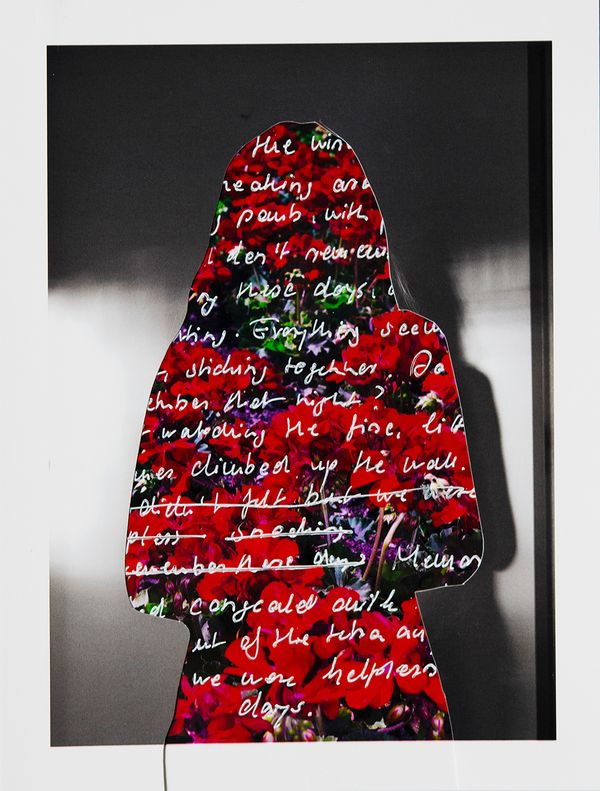 the win
reaking aro
, with
I don't remem
ng these days,
thing. Everything seem
stiching together. Do
ember that night?
watching the fire, lit
climbed up the wall.
didn't felt but we were
smoching
remember these days Memor
d congeald with
ut of the
we were helpless
days